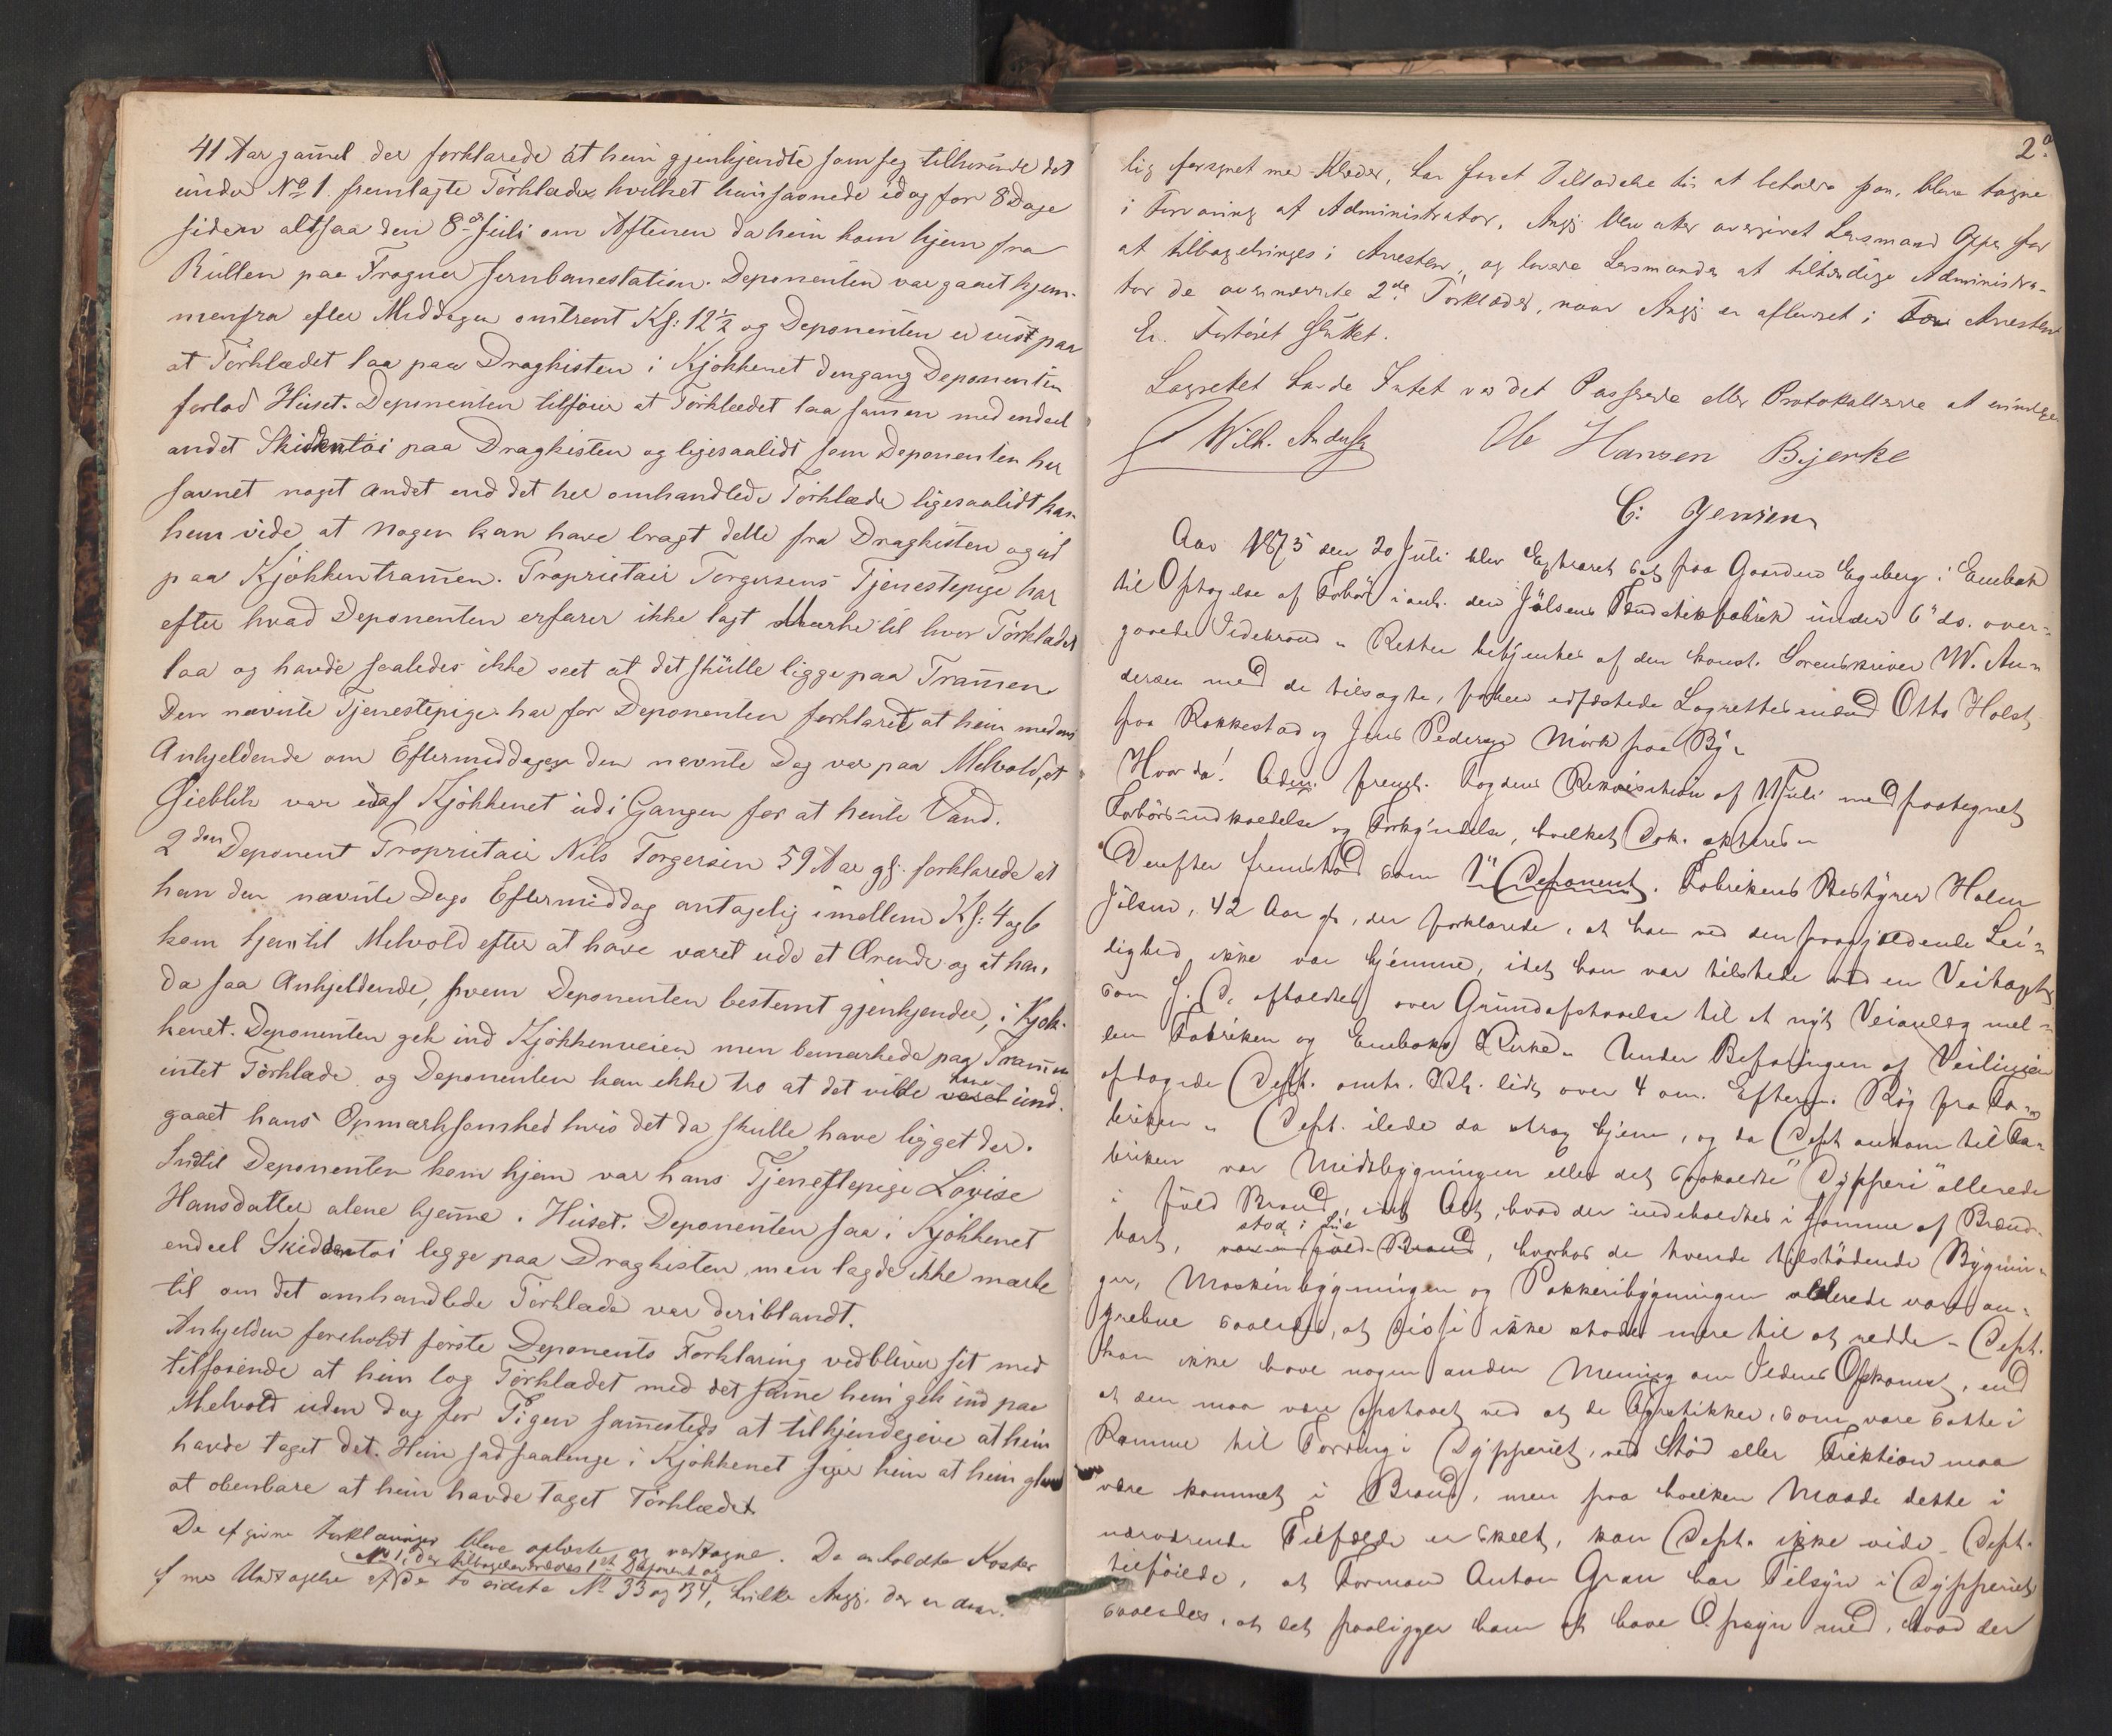 41 Aar gammel der forklarede at hun gjenkjendte som seg tilhørende det
under No 1 fremlagte Tørklæde hvilket hun savnede idag for 8 Dage
siden altsaa den 8de Juli om Aftenen da hun kom hjem fra
Rullen paa Frogner Jernbanestation. Deponenten var gaaet hjem-
menfra efter Middagen omtrent Kl: 12½ og Deponenten er vis paa
at Tørklædet laa paa Dragkisten i Kjøkkenet dengang Deponenten
forlod Huset. Deponenten tilføier at Tørklædet laa sammen med endeel
andet Skiddentøi paa Dragkisten og ligesaalidt som Deponenten har
savnet noget andet end det her omhandlede Tørklæde ligesaalidt kan
hun vide at nogen kan have bragt dette fra Dragkisten og ud
paa Kjøkkentrammen. Proprietair Torgersens Tjenestepige har
efter hvad Deponenten erfarer ikke lagt Mærke til hvor Tørklædet
laa og havde saaledes ikke seet at det skulle ligge paa Trammen
Den nævnte Tjenestepige har for Deponenten forklaret at hun medens
Anhjeldende om Eftermiddagen den nævnte Dag var paa Melvold, et
Øieblik var ud af Kjøkkenet ud i Gangen for at hente Vand.
2den Deponent Proprietair Nils Torgersen 59 Aar gl. forklarede at
han den nævnte Dags Eftermiddag antagelig imellem Kl: 4 og 6
kom hjem til Melvold efter at have været ude et Ærende og at han
da saa Anhjeldende, hvem Deponenten bestemt gjenkjender, i Kjøk-
kenet. Deponenten gik ind Kjøkkenveien men bemærkede paa Trammen
intet Tørklæde og Deponenten kan ikke tro at det vilde have und-
gaaet hans Opmærksomhed hvis det da skulle have ligget der.
Indtil Deponenten kom hjem var hans Tjenestepige Lovise
Hansdatter alene hjemme i Huset. Deponenten saa i Kjøkkenet
endeel Skiddentøi legge paa Dragkisten men lagde ikke mærke
til om det omhandlede Tørklæde var deriblandt.
Anhjelden foreholdt første Deponents Forklaring vedbliver sit med
tilføiende at hun tog Tørklædet med det samme hun gik ind paa
Melvold uden dog for Pigen sammesteds at tilkjendegive at hun
havde taget det. Hun sad saalenge i Kjøkkenet siger hun at hun glemte
at obenbare at hun havde taget Tørklædet
De afgivne Forklaringer bleve oplæste og vedtagne. De anholdte Koster
No 1, der tilbageleveredes 1ste Deponent og
med Undtagelse af de to sidste No 33 og 34, hvilke Angj. der er
2.
lig forsynet med Klæder, har faaet Tilladelse til at beholde paa, bleve tagne
i Forvaring af Administrator. Angj. blev atter overgivet Lensmand Opper for
at tilbagebringes i Arresten, og lovede Lensmanden at tilbagesende Administra-
tor de ovennævnte 2de Tørklæder, naar Angj. er afleveret i Arresten
Er. Forhøret sluttet.
Lagrettet havde Intet ved det Passerede eller Protokollerede at erindre
Wilh. Andersen Ole Hansen Bjerke
C. Jensen
Aar 1875 den 20 Juli blev Extraret sat paa Gaarden Egeberg i Enebak
til Optagelse af Forhør i anl. den Jølsens Tændstikfabrik under 6" ds. over-
gaaede Ildebrand. Retten betjentes af den konst. Sorenskriver W. An-
dersen med de tilsagte, forhen edfæstede Lagrettesmænd Otto Holst
fra Rakkestad og Jens Pedersen Mørk fra By.
Hvorda! Adm. freml. Fogdens Rekvisition af 11 Juli med paategnet
Forhørsindkaldelse og Forkyndelse, hvilket Dok. akteres.
Derefter fremstod som 1" Deponent. Fabrikens Bestyrer Holm
Jølsen, 42 Aar gl., der forklarede, at han ved den paagjældende Lei-
lighed ikke var hjemme, idet han var tilstede ved en Veitaxt
som J. D. afholdtes over Grundafstaaelse til et nyt Veianlæg mel-
lem Fabriken og Enebaks Kirke. Under Befaringen af Veilinien
opdagede Dept. omtr. Kl. lidt over 4 om Efterm. Røg fra Fa-
briken. Dept. ilede da strax hjem, og da Dept ankom til Fa-
briken var Midtbygningen eller det saakaldte "Dypperi" allerede
i fuld Brand, idet Alt, hvad der indeholdtes i samme af Brænd-
bart, stod i Lue, hvorhos de tvende tilstødende Bygnin-
ger, Maskinbygningen og Pakkeribygningen allerede vare an-
grebne saaledes, at disse ikke stode mere til at redde. Dept.
kan ikke have nogen anden Mening om Ildens Opkomst, end
at den maa være opstaaet ved at de Fyrstikker, som vare satte i
Ramme til Tørring i Dypperiet, ved Stød eller Friktion maa
være kommet i Brand, men paa hvilken Maade dette i
nærværende Tilfælde er skeet, kan Dept. ikke vide. Dept.
tilføiede, at Formand Anton Gran har Tilsyn i Dypperiet
saaledes, at det paaligger ham at have Opsyn med, hvad der